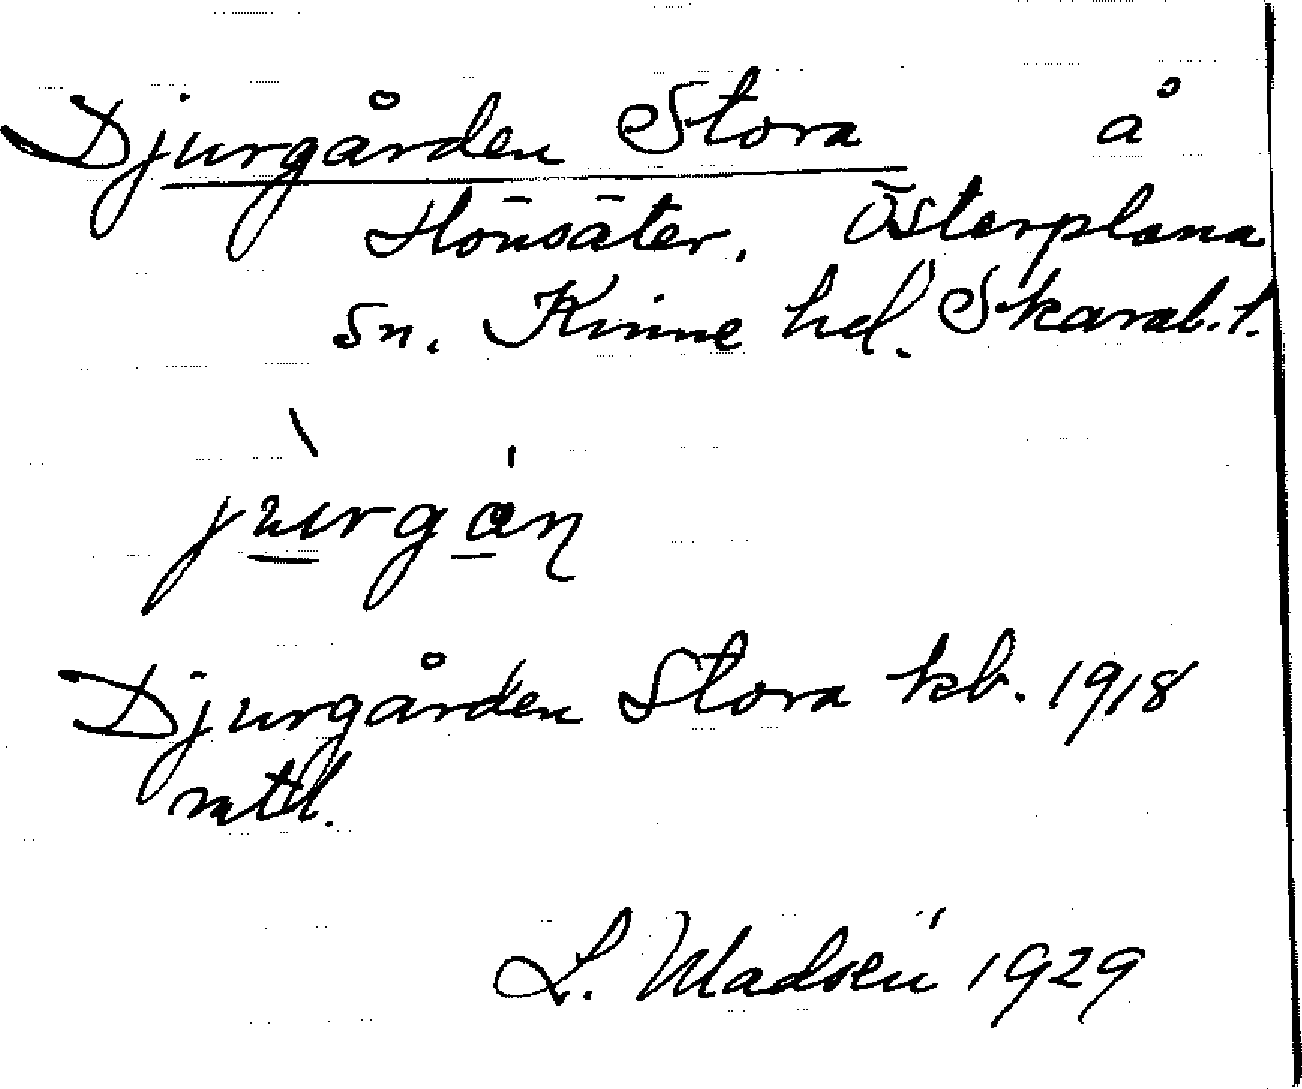 Djurgården Stora å
Hönsäter, Österplana
sn. Kinne hd. Skarab. l.
jùrgán
Djurgården Stora kb. 1918
mtl.
L. Madsén 1929